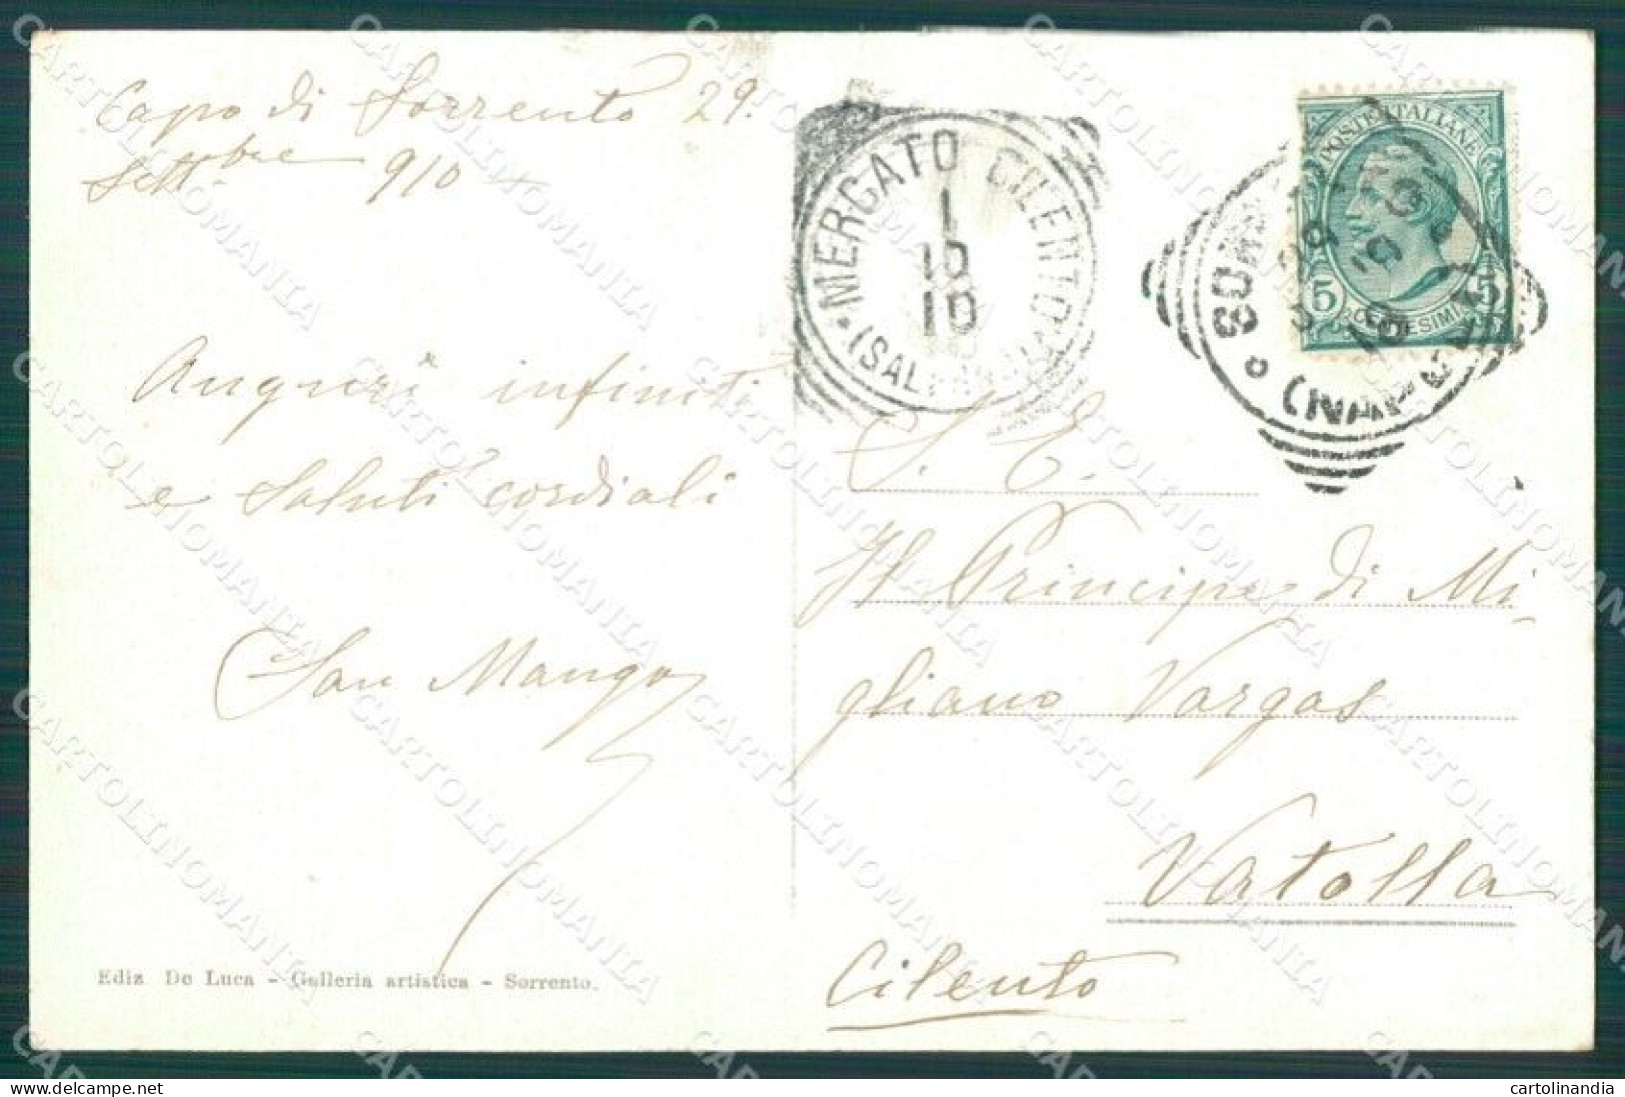 Capo di Sorrento 29.
Settbre 910
Auguri infiniti
e saluti cordiali
San Mango
Ediz De Luca - Galleria artistica - Sorrento.
MERCATO CILENTO
1
10
10
(SALERNO)
POSTE ITALIANE
5 5
CENTESIMI
S. E.
Il Principe di Mi-
gliano Vargas
Vatolla
Cilento
CARTOLINOMANIA
cartolinandia